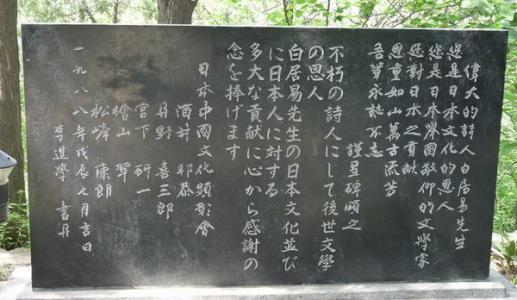 偉大的詩人白居易先生
您是日本文化的恩人
您是日本舉國敬仰的文學家
您對日本之貢獻
恩重如山萬古流芳
吾輩永誌不忘
謹呈碑頌之
不朽の詩人にして後世文學
の恩人
白居易先生の日本文化並び
に日本人に対する
多大な貢献に心から感謝の
念を捧げます
日本中國文化顕彰會
酒井 邦恭
丹野 喜三郎
宮下 研一
檜山 翠
松峰 康朗
一九八八年戊辰七月吉日
李進學 書丹